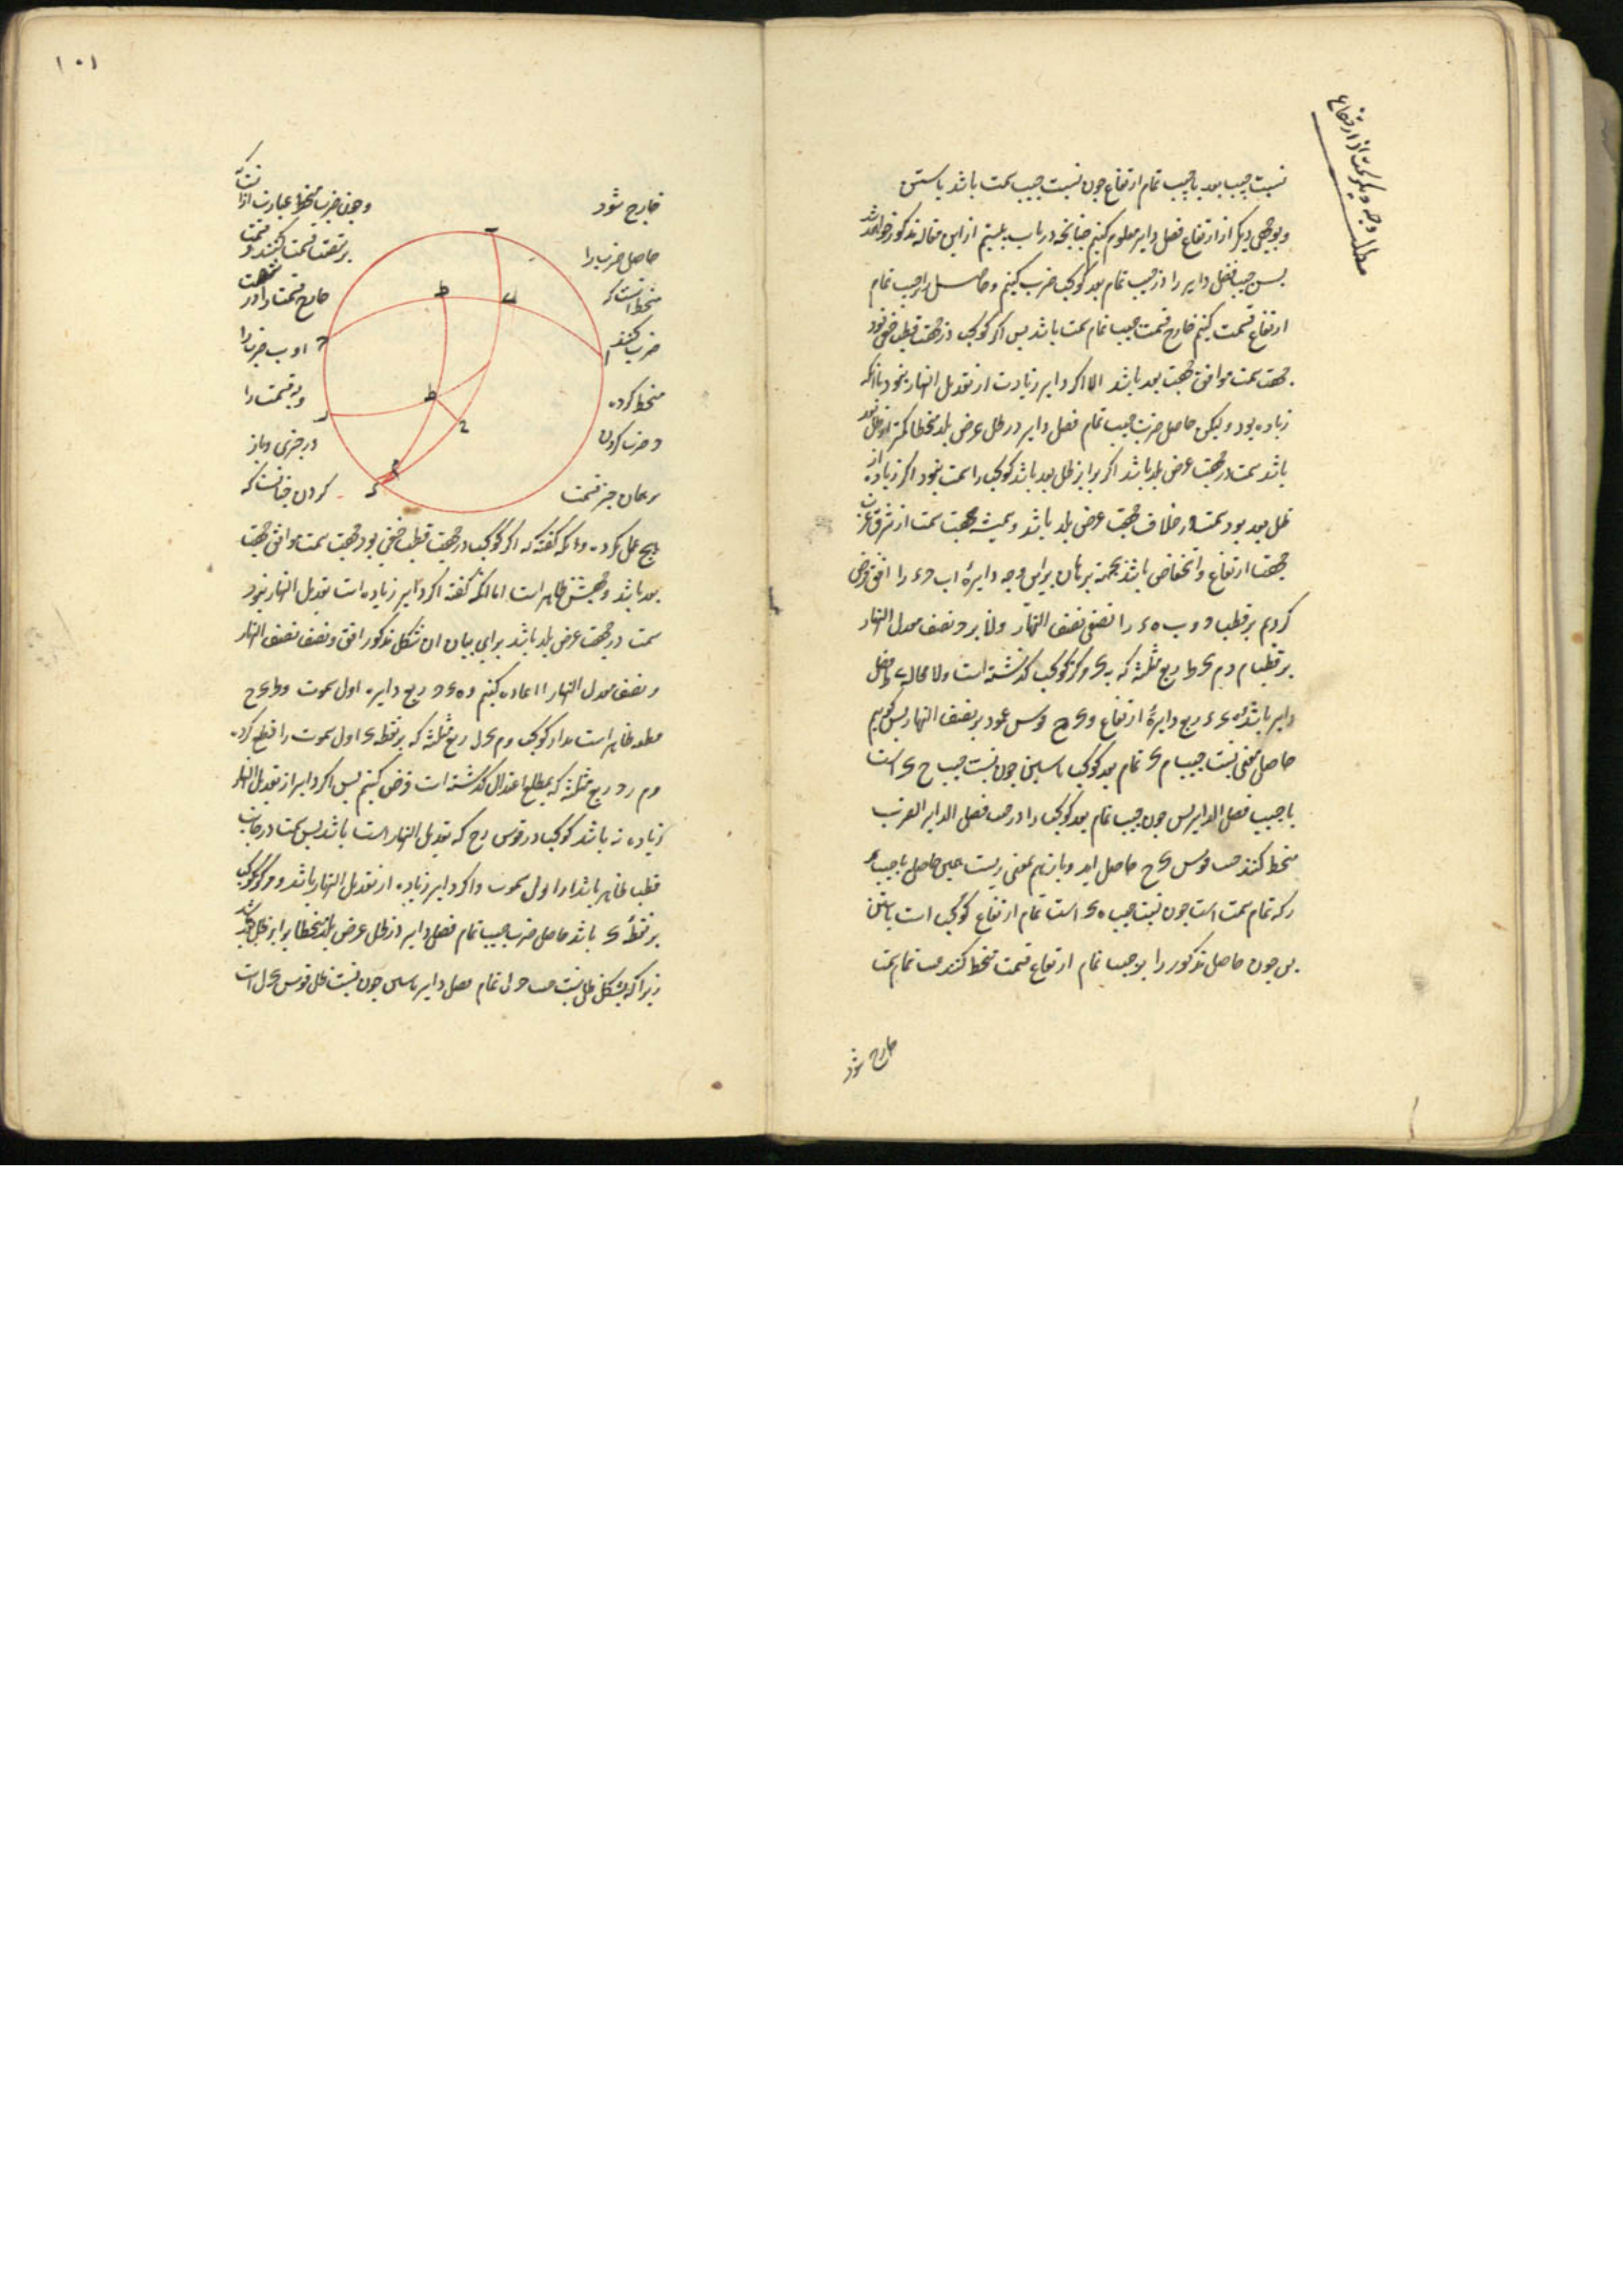 مطلب وجه دیکر سمت از ارتفاع
نسبت جیب بعد با جیب تمام ارتفاع چون نسبت جیب سمت باشد با ستین
و بوجهی دیکر از ارتفاع فضل دایر معلوم کنیم چنانچه در باب بیستم از این مقاله مذکور خواهد شد
پس جیب فضل دایر را در جیب تمام بعد کوکب ضرب کنیم و حاصل را بر جیب تمام
ارتفاع قسمت کنیم خارج قسمت جیب تمام سمت باشد پس اکر کوکب در جهت قطب خفی بود
جهت سمت موافق جهت بعد باشد اما اکر دایر زیادت از تعدیل النهار نبود یا انکه
زیاده بود و لیکن حاصل ضرب جیب تمام فضل دایر در ظل عرض بلد منحطا کمتر از ظل بعد
باشد سمت در جهت عرض بلد باشد اکر برابر ظل بعد باشد کوکب را سمت نبود اکر زیاده از
ظل بعد بود سمت در خلاف جهت عرض بلد باشد و همیشه جهت سمت از شرق و غرب
جهت ارتفاع و انخفاض باشد بجهة برهان براین وجه دایرۀ اب ج د را افق فرض
کردیم بر قطب ه و ب ه د را نصف نصف النهار و نصف معدل النهار
بر قطب م و م ی ط ربع مثلثه که به ی مرکز کوکب کذشته است و لا محاله ط فضل
دایر باشد ه ی ربع دایرۀ ارتفاع و ی ح قوس عمود بر نصف النهار پس کوییم
حاصل معنی نسبت جیب م ی تمام بعد کوکب با ستین چون نسبت جیب ح ی است
با جیب فضل الدایر پس چون جیب تمام بعد کوکب را در جیب فضل الدایر ضرب
منحط کنند جیب قوس ی ح حاصل اید و باز بهم معنی نسبت همین حاصل با جیب
ر که تمام سمت است چون نسبت جیب ه ی است تمام ارتفاع کوکب است با ستین
پس چون حاصل مذکور را بر جیب تمام ارتفاع قسمت منحط کنند جیب تمام سمت
خارج شود
١٠١
خارج شود
حاصل ضرب را
منحط انست که
ضرب کنند
منحط کرده
و ضرب کردن
بر همان جیز قسمت
و چون ضرب منحط عبارت از انست که
بر شصت قسمت کنند و قسمت
خارج قسمت را در شصت
او ب ضرب را
و به قسمت را
در جزی و باز
کردن چنانست که
هیچ عمل نکرده و انکه کفته که اکر کوکب در جهت قطب خفی بود جهت سمت موافق جهت
بعد باشد وجهش ظاهر است اما انکه کفته اکر دایر زیاده است تعدیل النهار نبود
سمت در جهت عرض بلد باشد برای بیان ان شکل مذکور افق و نصف نصف النهار
و نصف معدل النهار را اعاده کنیم و ه ی ج ربع دایره اول سموت و ط ی ح
مدار کوکب و م ی ل ربع مثلثه که بر نقطه ی اول سموت را قطع کرده
و م ر ج ربع مثلثه که بمطلع اعتدال کذشته است فرض کنیم پس اکر دایر از تعدیل النهار
زیاده نه باشد کوکب در قوس ر ح که تعدیل النهار است باشد پس سمت در جانب
قطب ظاهر باشد از اول سموت و اکر دایر زیاده از تعدیل النهار باشد و مرکز کوکب
بر نقطۀ ی باشد حاصل ضرب جیب تمام فضل دایر در ظل عرض بلد منحطا برابر ظل بعد باشد
زیرا که بشکل ظلی نسبت جیب ج ل تمام فضل دایر با ستین چون نسبت ظل قوس ی ل است